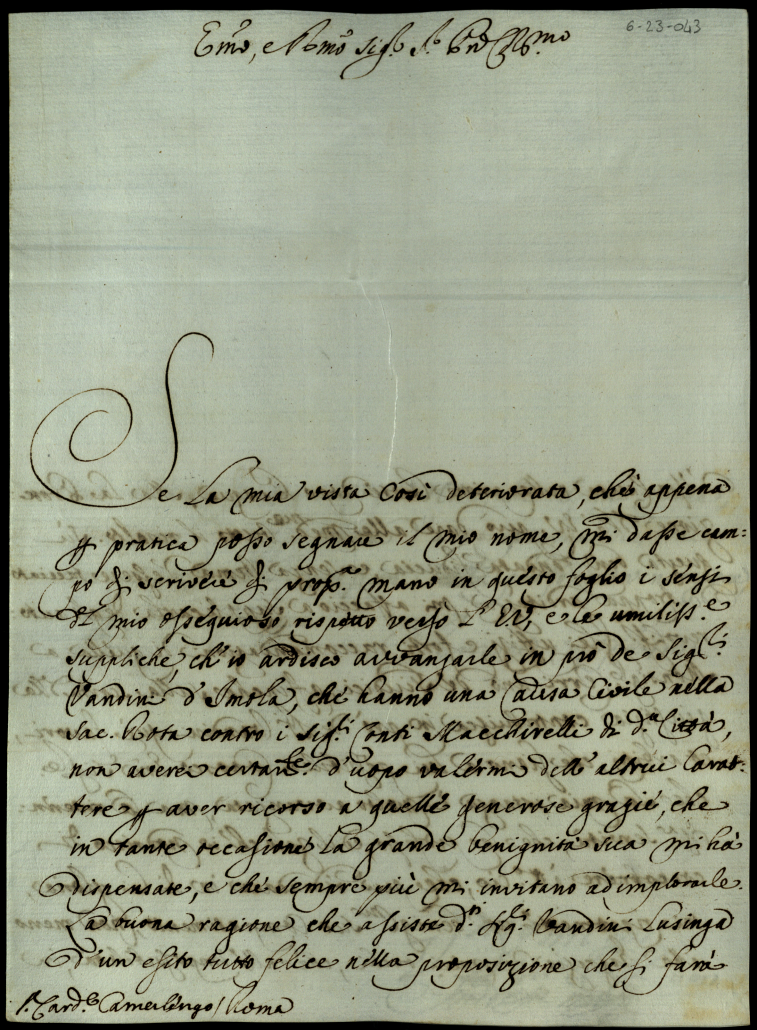 6-23-043
Emo, e Rmo Sigr. Sr. Pnē Colmo
Se La mia vista Così deteriorata, che appena
p pratica posso segnare il mio nome, mi dasse cam=
po di scrivere di propa. mano in questo foglio i sensi
del mio ossequioso rispetto verso L'EV, e le umiliss.e
suppliche, ch'io ardisco avvanzarle in prò de Sigri.
Vandini d'Imola, che hanno una Causa Civile nella
Sac. Rota contro i Sigri. Conti Macchirelli di da. Città,
non averei certamte. d'uopo valermi dell'altrui Carat=
tere p aver ricorso a quelle generose grazie, che
in tante occasione La grande benignità sua mi hà
dispensate, e che sempre più mi invitano ad implorarle.
La buona ragione che assiste di. Sigri. Vandini Lusinga
d'un esito tutto felice nella proposizione che si farà
Sr. Carde. Camerlengo / Roma